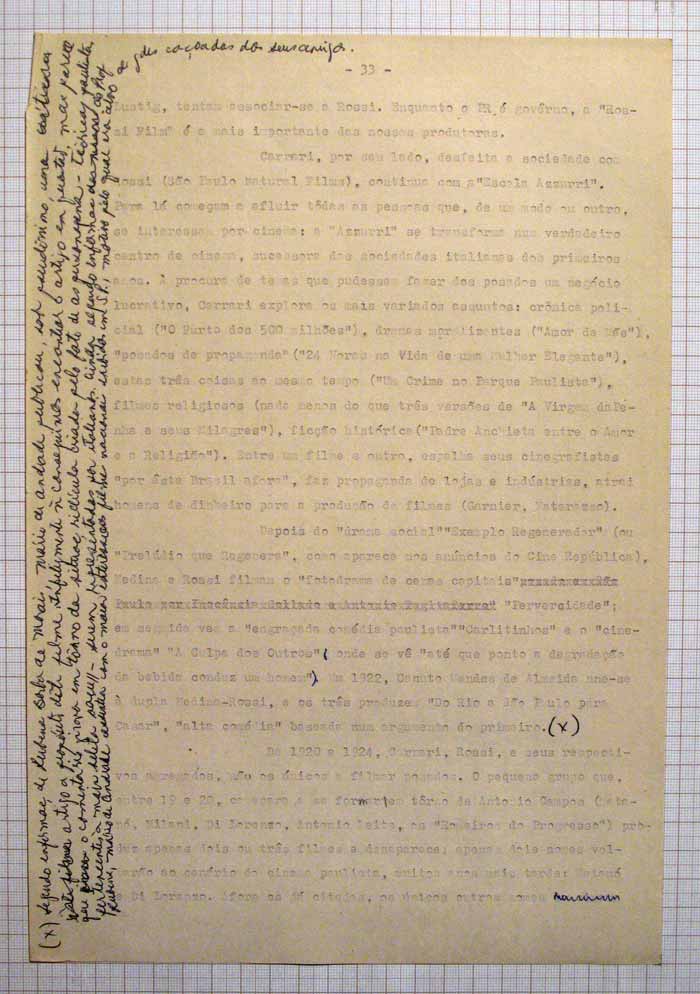 - 33 -
Lustig, tentam associar-se a Rossi. Enquanto o PR é govêrno, a "Ros-
si Film" é a mais importante das nossas produtoras.
Carrari, por seu lado, desfeita a sociedade com
Rossi (São Paulo Natural Films), continua com a "Escola Azzurri".
Para lá começam a afluir tôdas as pessoas que, de um modo ou outro,
se interessam por cinema: a "Azzurri" se transforma num verdadeiro
centro de cinema, sucessora das sociedades italianas dos primeiros
anos. À procura de temas que pudessem fazer dos posados um negócio
lucrativo, Carrari explora os mais variados assuntos: crônica poli-
cial ("O Furto dos 500 milhões"), dramas moralizantes ("Amor de Mãe"),
"posados de propaganda" ("24 Horas na Vida de uma Mulher Elegante"),
estas três coisas ao mesmo tempo ("Um Crime no Parque Paulista"),
filmes religiosos (nada menos do que três versões de "A Virgem daPe-
nha e seus Milagres"), ficção histórica("Padre Anchieta entre o Amor
e a Religião"). Entre um filme e outro, espalha seus cinegrafistas
"por êste Brasil afora", faz propaganda de lojas e indústrias, atrai
homens de dinheiro para a produção de filmes (Garnier, Matarazzo).
Depois do "drama social" "Exemplo Regenerador" (ou
"Prelúdio que Regenera", como aparece nos anúncios do Cine República),
Medina e Rossi filmam o "fotodrama de cenas capitais"
"Perversidade";
em seguida vem a "engraçada comédia paulista" "Carlitinhos" e o "cine-
drama" "A Culpa dos Outros" (onde se vê "até que ponto a degradação
da bebida conduz um homem"). Em 1922, Canuto Mendes de Almeida une-se
à dupla Medina-Rossi, e os três produzem "Do Rio a São Paulo para
Casar", "alta comédia" baseada num argumento do primeiro. (x)
De 1920 a 1924, Carrari, Rossi, e seus respecti-
vos agregados, não os únicos a filmar posados. O pequeno grupo que,
entre 19 e 20, começara a se formar em tôrno de Antonio Campos (
Milani, Di Lorenzo, Antonio Leite, os "Romeiros do Progresso") pro-
duz apenas dois ou três filmes e desaparece; apenas dois nomes vol-
tarão ao cenário do cinema paulista, muitos anos mais tarde:
e Di Lorenzo. Afora os já citados, os únicos outros nomes
(x) Segundo informaç. de Rubens Borba de Morais Mário de Andrade publicou, sob pseudônimo, uma
artigo a propósito dêste filme. Infelizmente ñ conseguimos encontrar o artigo em questão, mas parece
que o comentário girava em tôrno da situaç. ridícula criada pelo fato de as personagens - típicas paulistas,
pertencentes à mais seleta - serem representadas por italianos. Ainda segundo informaç.
Rubens, Mário de Andrade assistia com o maior interesse aos filmes nacionais exibidos em S.P., motivo pelo qual era alvo de
gdes caçoadas dos seus amigos.